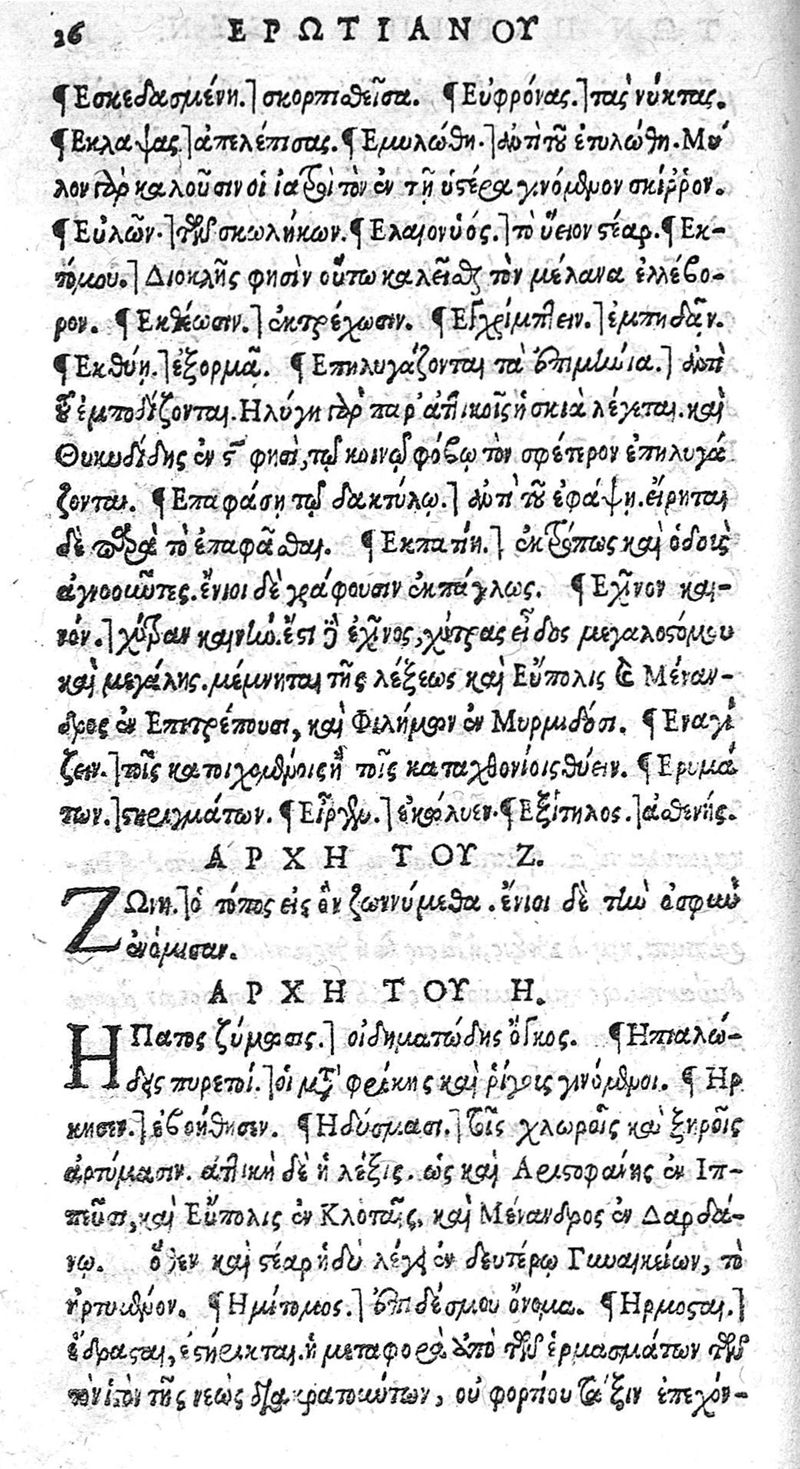 26 ΕΡΩΤΙΑΝΟΥ
¶Εσκεδασμένη.] σκορπισθεῖσα. ¶Εὐφρόνας.] τας νύκτας.
¶Εκλαψας.] ἀπελέπισας. ¶Εμυλώθη.] ἀντὶ τοῦ ἐτυλώθη. Μύ
λον γὰρ καλοῦσιν οἱ ἰατροὶ τὸν ἐν τῇ ὑστέρα γινόμενον σκίῤῥον.
¶Εὐλῶν.] τῶν σκωλήκων. ¶Ελαιονυός.] τὸ ὕειον στέαρ. ¶Εκ-
τόμου.] Διοκλῆς φησὶν οὕτω καλεῖσθαι τὸν μέλανα ἐλλέβο-
ρον. ¶Εκθέωσιν.] ἐκτρέχωσιν. ¶Εγχρίμπτειν.] ἐμπηδᾶν.
¶Εκθύῃ.] ἐξορμᾷ. ¶Επηλυγάζονται τὰ ἐπιμήνια.] ἀντὶ
τοῦ ἐμποδίζονται. Ηλύγη γὰρ παρ' ἀττικοῖς ἡ σκιὰ λέγεται. καὶ
Θυκυδίδης ἐν ϛ φησὶ, τῷ κοινῷ φόβῳ τὸν σφέτερον ἐπηλυγά
ζονται. ¶Επαφάσῃ τῷ δακτύλῳ.] ἀντὶ τοῦ ἐφάψῃ. εἴρηται
δὲ παρὰ τὸ ἐπαφᾶσθαι. ¶Εκπατίῃ.] ἐκτρόπως καὶ ὁδοῖς
ἀγνοοῦντες. ἔνιοι δὲ γράφουσιν ἐκπάγλως. ¶Εχῖνον και-
νόν.] χύτραν καινὴν. ἔστι δὲ ἐχῖνος, χύτρας εἶδος μεγαλοστόμου
καὶ μεγάλης. μέμνηται τῆς λέξεως καὶ Εὔπολις καὶ Μέναν-
δρος ἐν Επιτρέπουσι, καὶ Φιλήμων ἐν Μυρμιδόσι. ¶Εναγί
ζειν.] τοῖς κατοιχομένοις ἢ τοῖς καταχθονίοις θύειν. ¶Ερυμά
των.] στηριγμάτων. ¶Εἶργεν.] ἐκώλυεν. ¶Εξίτηλος.] ἀσθενής.
ΑΡΧΗ ΤΟΥ Ζ.
ΖΩνη.] ὁ τόπος εἰς ὃν ζωννύμεθα. ἔνιοι δὲ τὴν ὀσφῦν
ἐνόμισαν.
ΑΡΧΗ ΤΟΥ Η.
ΗΠατος ζύμωσις.] οἰδηματώδης ὄγκος. ¶Ηπιαλώ-
δεις πυρετοί.] οἱ μετὰ φρίκης καὶ ῥίγοις γινόμενοι. ¶Ηρ
κησεν.] ἐβοήθησεν. ¶Ηδύσμασι.] τοῖς χλωροῖς καὶ ξηροῖς
ἀρτύμασιν. ἀττικὴ δὲ ἡ λέξις. ὡς καὶ Αριστοφάνης ἐν Ιπ-
πεῦσι, καὶ Εὔπολις ἐν Κλοπαῖς, καὶ Μένανδρος ἐν Δαρδά-
νῳ. ὅθεν καὶ στέαρ ἡδὺ λέγει ἐν δευτέρῳ Γυναικείων, τὸ
ἠρτυμένον. ¶Ημίτομος.] ἐπιδέσμου ὄνομα. ¶Ηρμοσται.]
ἕδρασται, ἐστήρικται. ἡ μεταφορὰ ἀπὸ τῶν ἑρμασμάτων τῶν
τὸν ἱστὸν τῆς νεὼς διακρατούντων, οὐ φορτίου τάξιν ἐπεχόν-